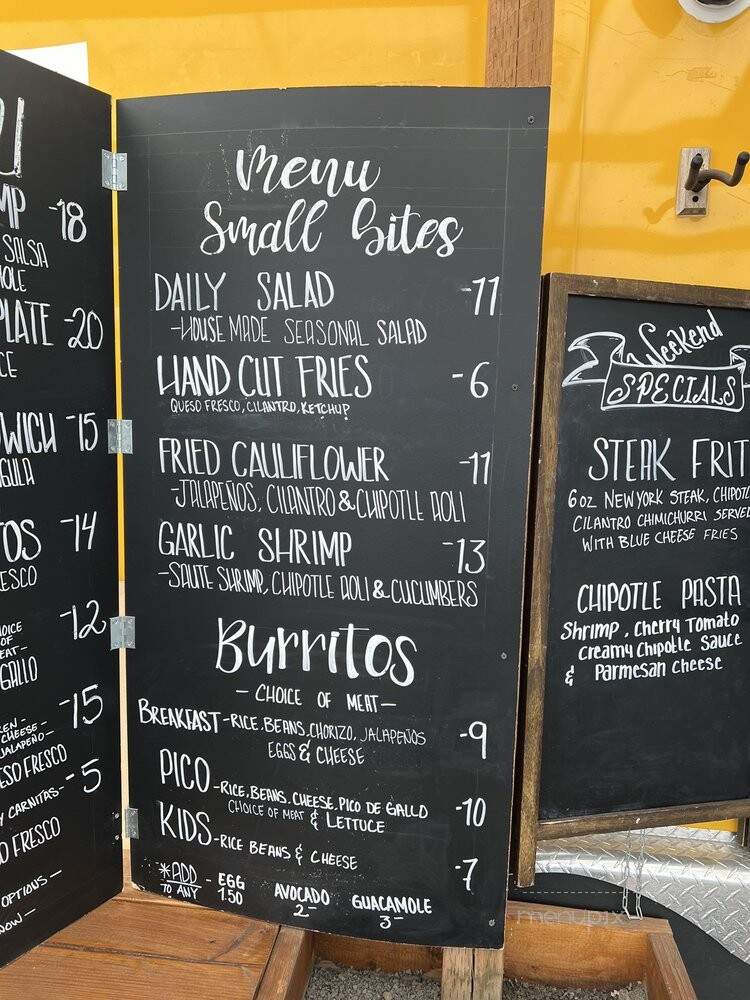 -18
SALSA
PLATE -20
-15
-14
-12
GALLO
-15
CHEESE-
JALAPEÑO-
-5
CARNITAS-
FRESCO
OPTIONS-
Menu
Small Bites
DAILY SALAD -11
-HOUSE MADE SEASONAL SALAD
HAND CUT FRIES -6
QUESO FRESCO, CILANTRO, KETCHUP
FRIED CAULIFLOWER -11
-JALAPEÑOS, CILANTRO & CHIPOTLE AOLI
GARLIC SHRIMP -13
-SAUTE SHRIMP, CHIPOTLE AOLI & CUCUMBERS
Burritos
-CHOICE OF MEAT-
BREAKFAST-RICE, BEANS, CHORIZO, JALAPEÑOS -9
EGGS & CHEESE
PICO-RICE, BEANS, CHEESE, PICO DE GALLO -10
CHOICE OF MEAT & LETTUCE
KIDS-RICE BEANS & CHEESE -7
*ADD TO ANY - EGG 1.50 AVOCADO 2- GUACAMOLE 3-
Weekend
SPECIALS
STEAK FRIT
6 OZ NEW YORK STEAK, CHIPOTL
CILANTRO CHIMICHURRI SERVED
WITH BLUE CHEESE FRIES
CHIPOTLE PASTA
Shrimp, Cherry Tomato
Creamy Chipotle Sauce
& Parmesan Cheese
menupix